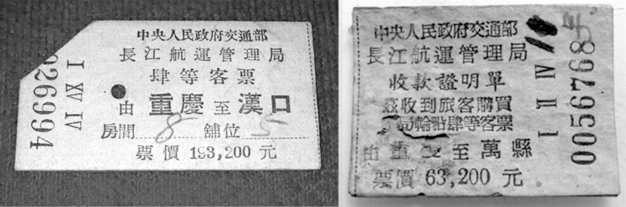 中央人民政府交通部
長江航運管理局
肆等客票
由 重慶 至 漢口
房間 8 舖位 5
票價 193,200 元
I XV IV
026994
中央人民政府交通部
長江航運管理局
收款證明單
茲收到旅客購買
輪船肆等客票
由 重 至 萬縣
票價 63,200 元
I II IV
0056768